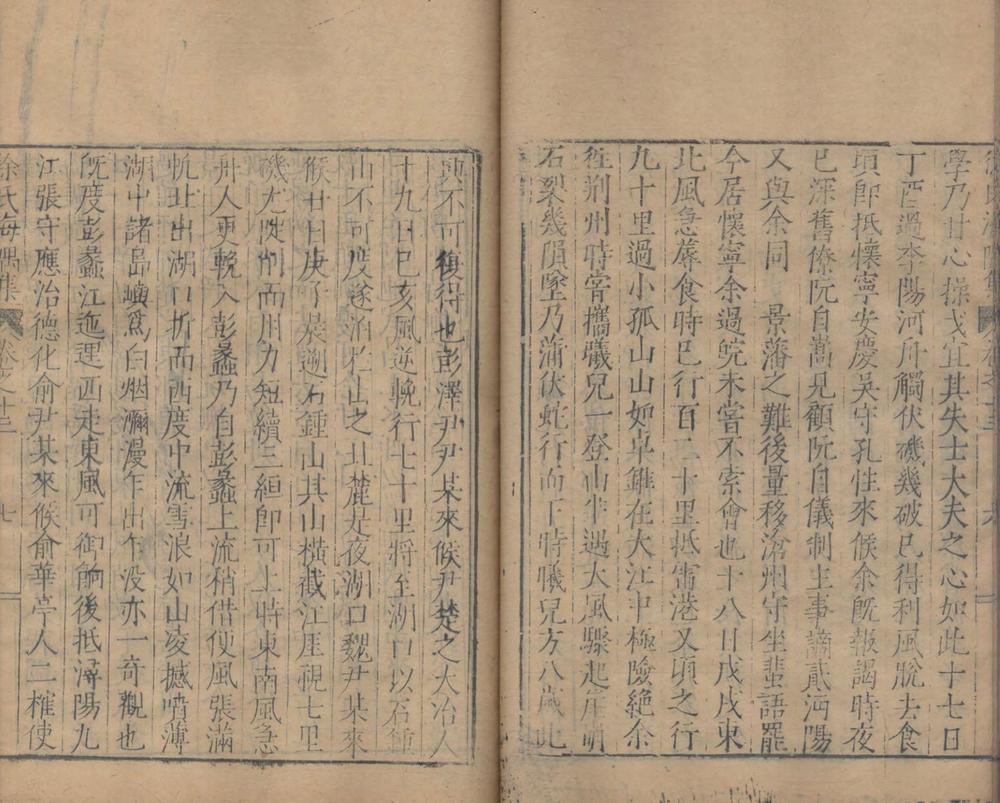 學乃甘心操戈宜其失士大夫之心如此十七日
丁酉過李陽河舟觸伏磯幾破已得利風脫去食
頃卽抵懷寧安慶吳守孔性來候余旣報謁時夜
已深舊僚阮自嵩見顧阮自儀制主事謫貳沔陽
又與余同景藩之難後量移滄州守坐蜚語罷
今居懷寧余過皖未嘗不索會也十八日戊戌東
北風急蓐食時已行百二十里抵雷港又頃之行
九十里過小孤山山如卓錐在大江中極險絕余
徃荆州時嘗攜曦兒一登山半遇大風驟起崖崩
石裂幾隕墜乃蒲伏蛇行而下時曦兒方八歲此
更不可復得也彭澤尹尹某來候尹楚之大冶人
十九日巳亥風逆輓行七十里將至湖口以石鍾
山不可度遂泊於山之北麓是夜湖口魏尹某來
候廿日庚子晨遡石鍾山其山橫截江厓視七里
磯尤陡削而用力短續三絙卽可上時東南風急
舟人更輓入彭蠡乃自彭蠡上流稍借便風張滿
帆北出湖口折而西度中流雪浪如山凌撼噴薄
湖中諸島嶼爲白烟瀰漫乍出乍沒亦一奇觀也
旣度彭蠡江迤邐西走東風可御餉後抵潯陽九
江張守應治德化俞尹某來候俞華亭人二榷使
徐氏海隅集 卷之十三 七